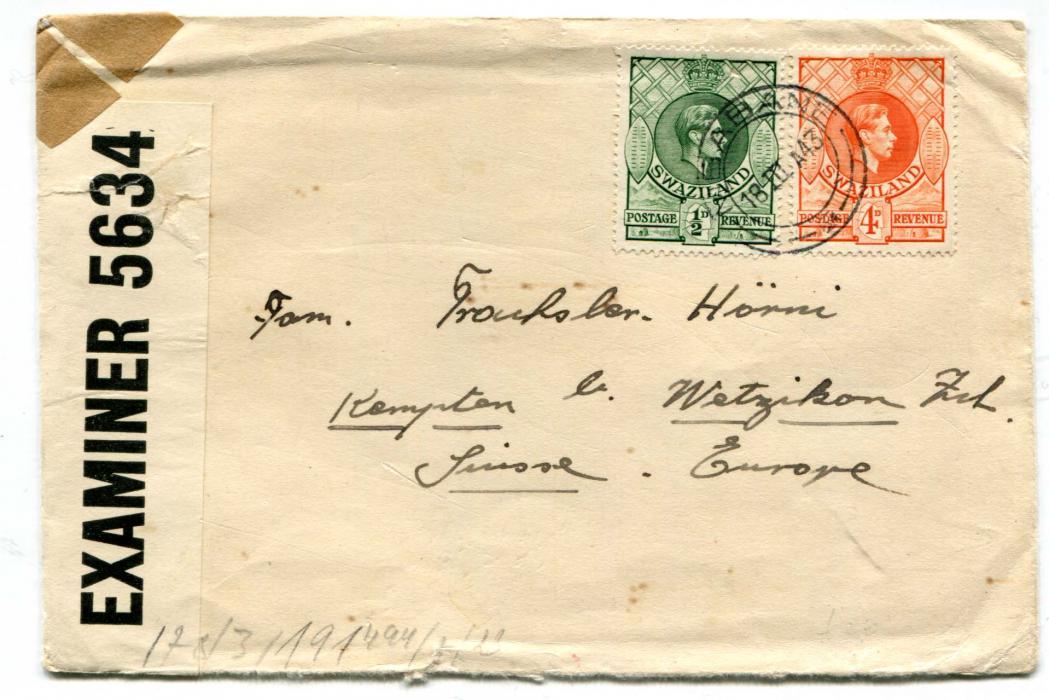 EXAMINER 5634
SWAZILAND
POSTAGE ½D REVENUE
SWAZILAND
POSTAGE 4D REVENUE
18 III 43
Fam. Trachsler-Hörni
Kempten b. Wetzikon Zch.
Suisse. Europe